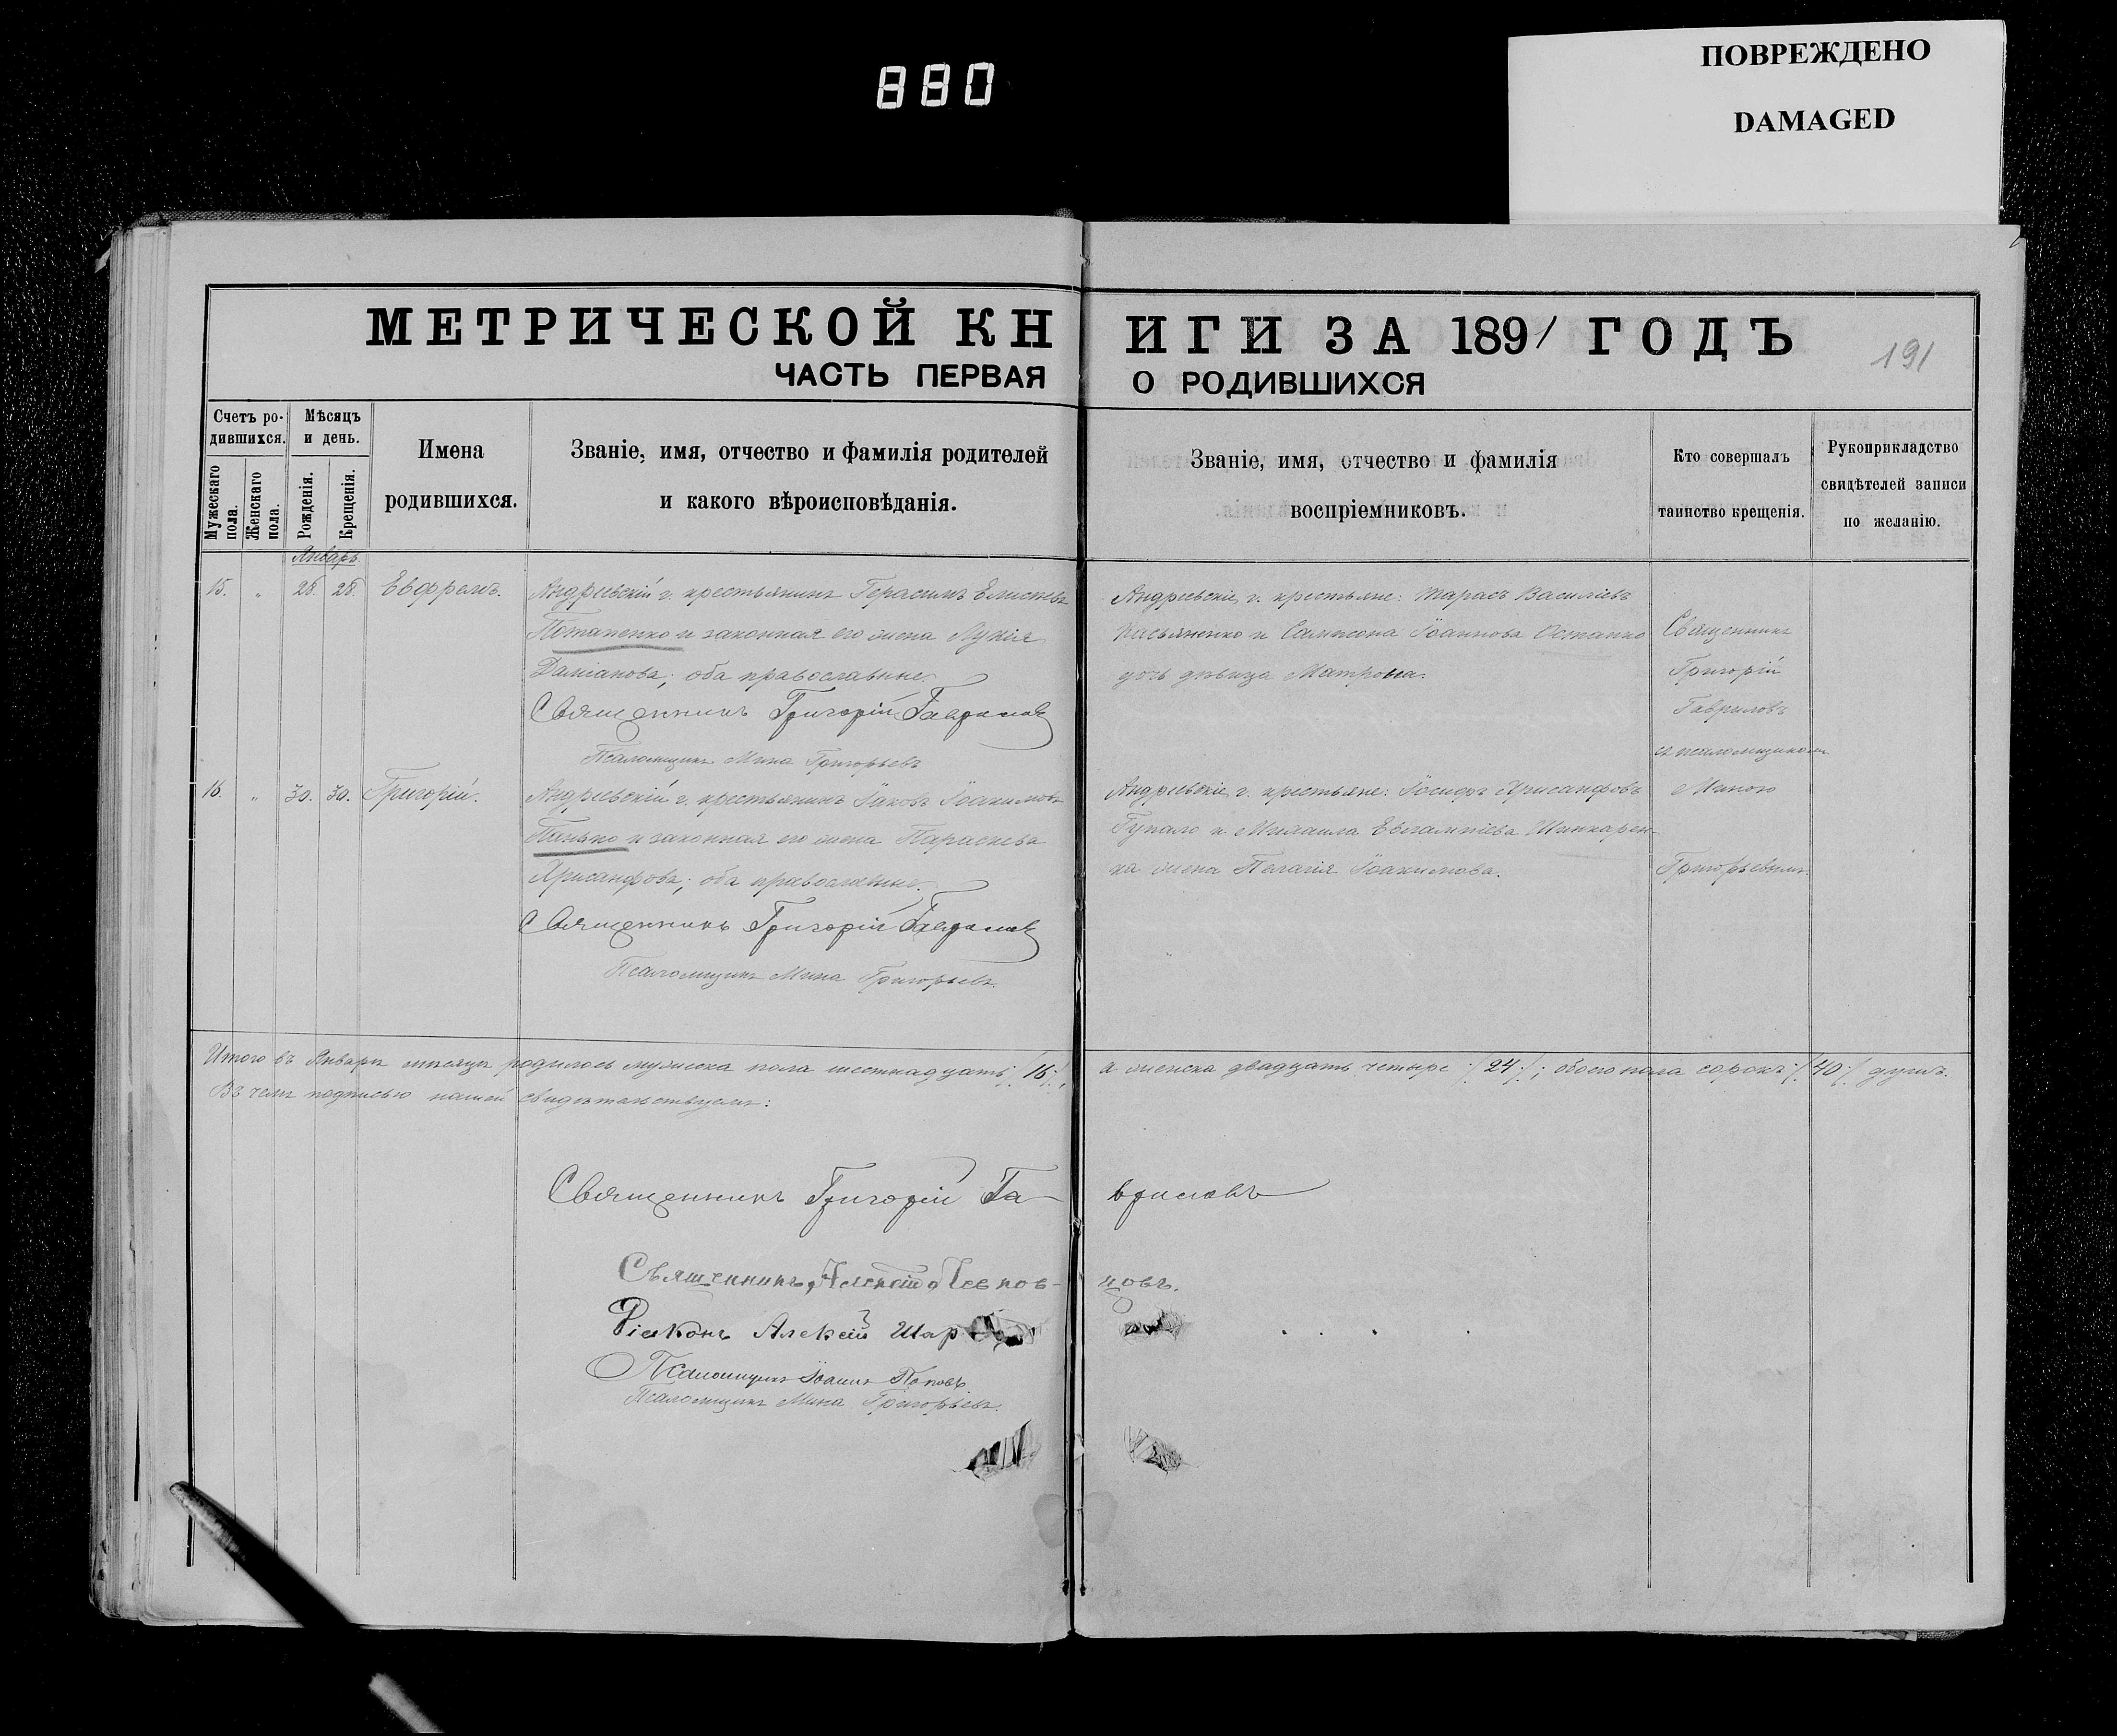 880
ПОВРЕЖДЕНО
DAMAGED
МЕТРИЧЕСКОЙ КНИГИ ЗА 1891 ГОДЪ
191
ЧАСТЬ ПЕРВАЯ О РОДИВШИХСЯ
Счетъ ро-
дившихся.
Мужескаго
пола.
Женскаго
пола.
Мѣсяцъ
и день.
Рожденія.
Крещенія.
Имена
родившихся.
Званіе, имя, отчество и фамилія родителей
и какого вѣроисповѣданія.
Званіе, имя, отчество и фамилія
воспріемниковъ.
Кто совершалъ
таинство крещенія.
Рукоприкладство
свидѣтелей записи
по желанію.
Январь
15. „ 28. 28. Евфремъ.
Андреевскій г. крестьянинъ Герасимъ
Потапенко и законная его жена Лукія
Даміанова; оба православные.
Священникъ Григорій Гавриловъ
Псаломщикъ Мина Григорьевъ
Андреевскіе г. крестьяне: Тарасъ Васильевъ
Касьяненко и Сампсона Іоаннова Остапко
дочь дѣвица Матрона.
Священникъ
Григорій
Гавриловъ
съ псаломщикомъ
Миною
Григорьевымъ.
16. „ 30. 30. Григорій.
Андреевскій г. крестьянинъ Іаковъ Іоакимовъ
Панько и законная его жена Параскева
Хрисанфова; оба православные.
Священникъ Григорій Гавриловъ
Псаломщикъ Мина Григорьевъ.
Андреевскіе г. крестьяне: Іосифъ Хрисанфовъ
Гупало и Михаила Евлампіева Шинкарен-
ка жена Пелагія Іоакимова.
Итого въ Январѣ мѣсяцѣ родилось мужеска пола шестнадцать /16/, а женска двадцать четыре /24/; обоего пола сорокъ /40/ душъ.
Въ чемъ подписью нашей свидѣтельствуемъ:
Священникъ Григорій Гавриловъ
Священникъ Алексій
Діаконъ Алексій Шар
Псаломщикъ Іоаннъ Поповъ
Псаломщикъ Мина Григорьевъ.